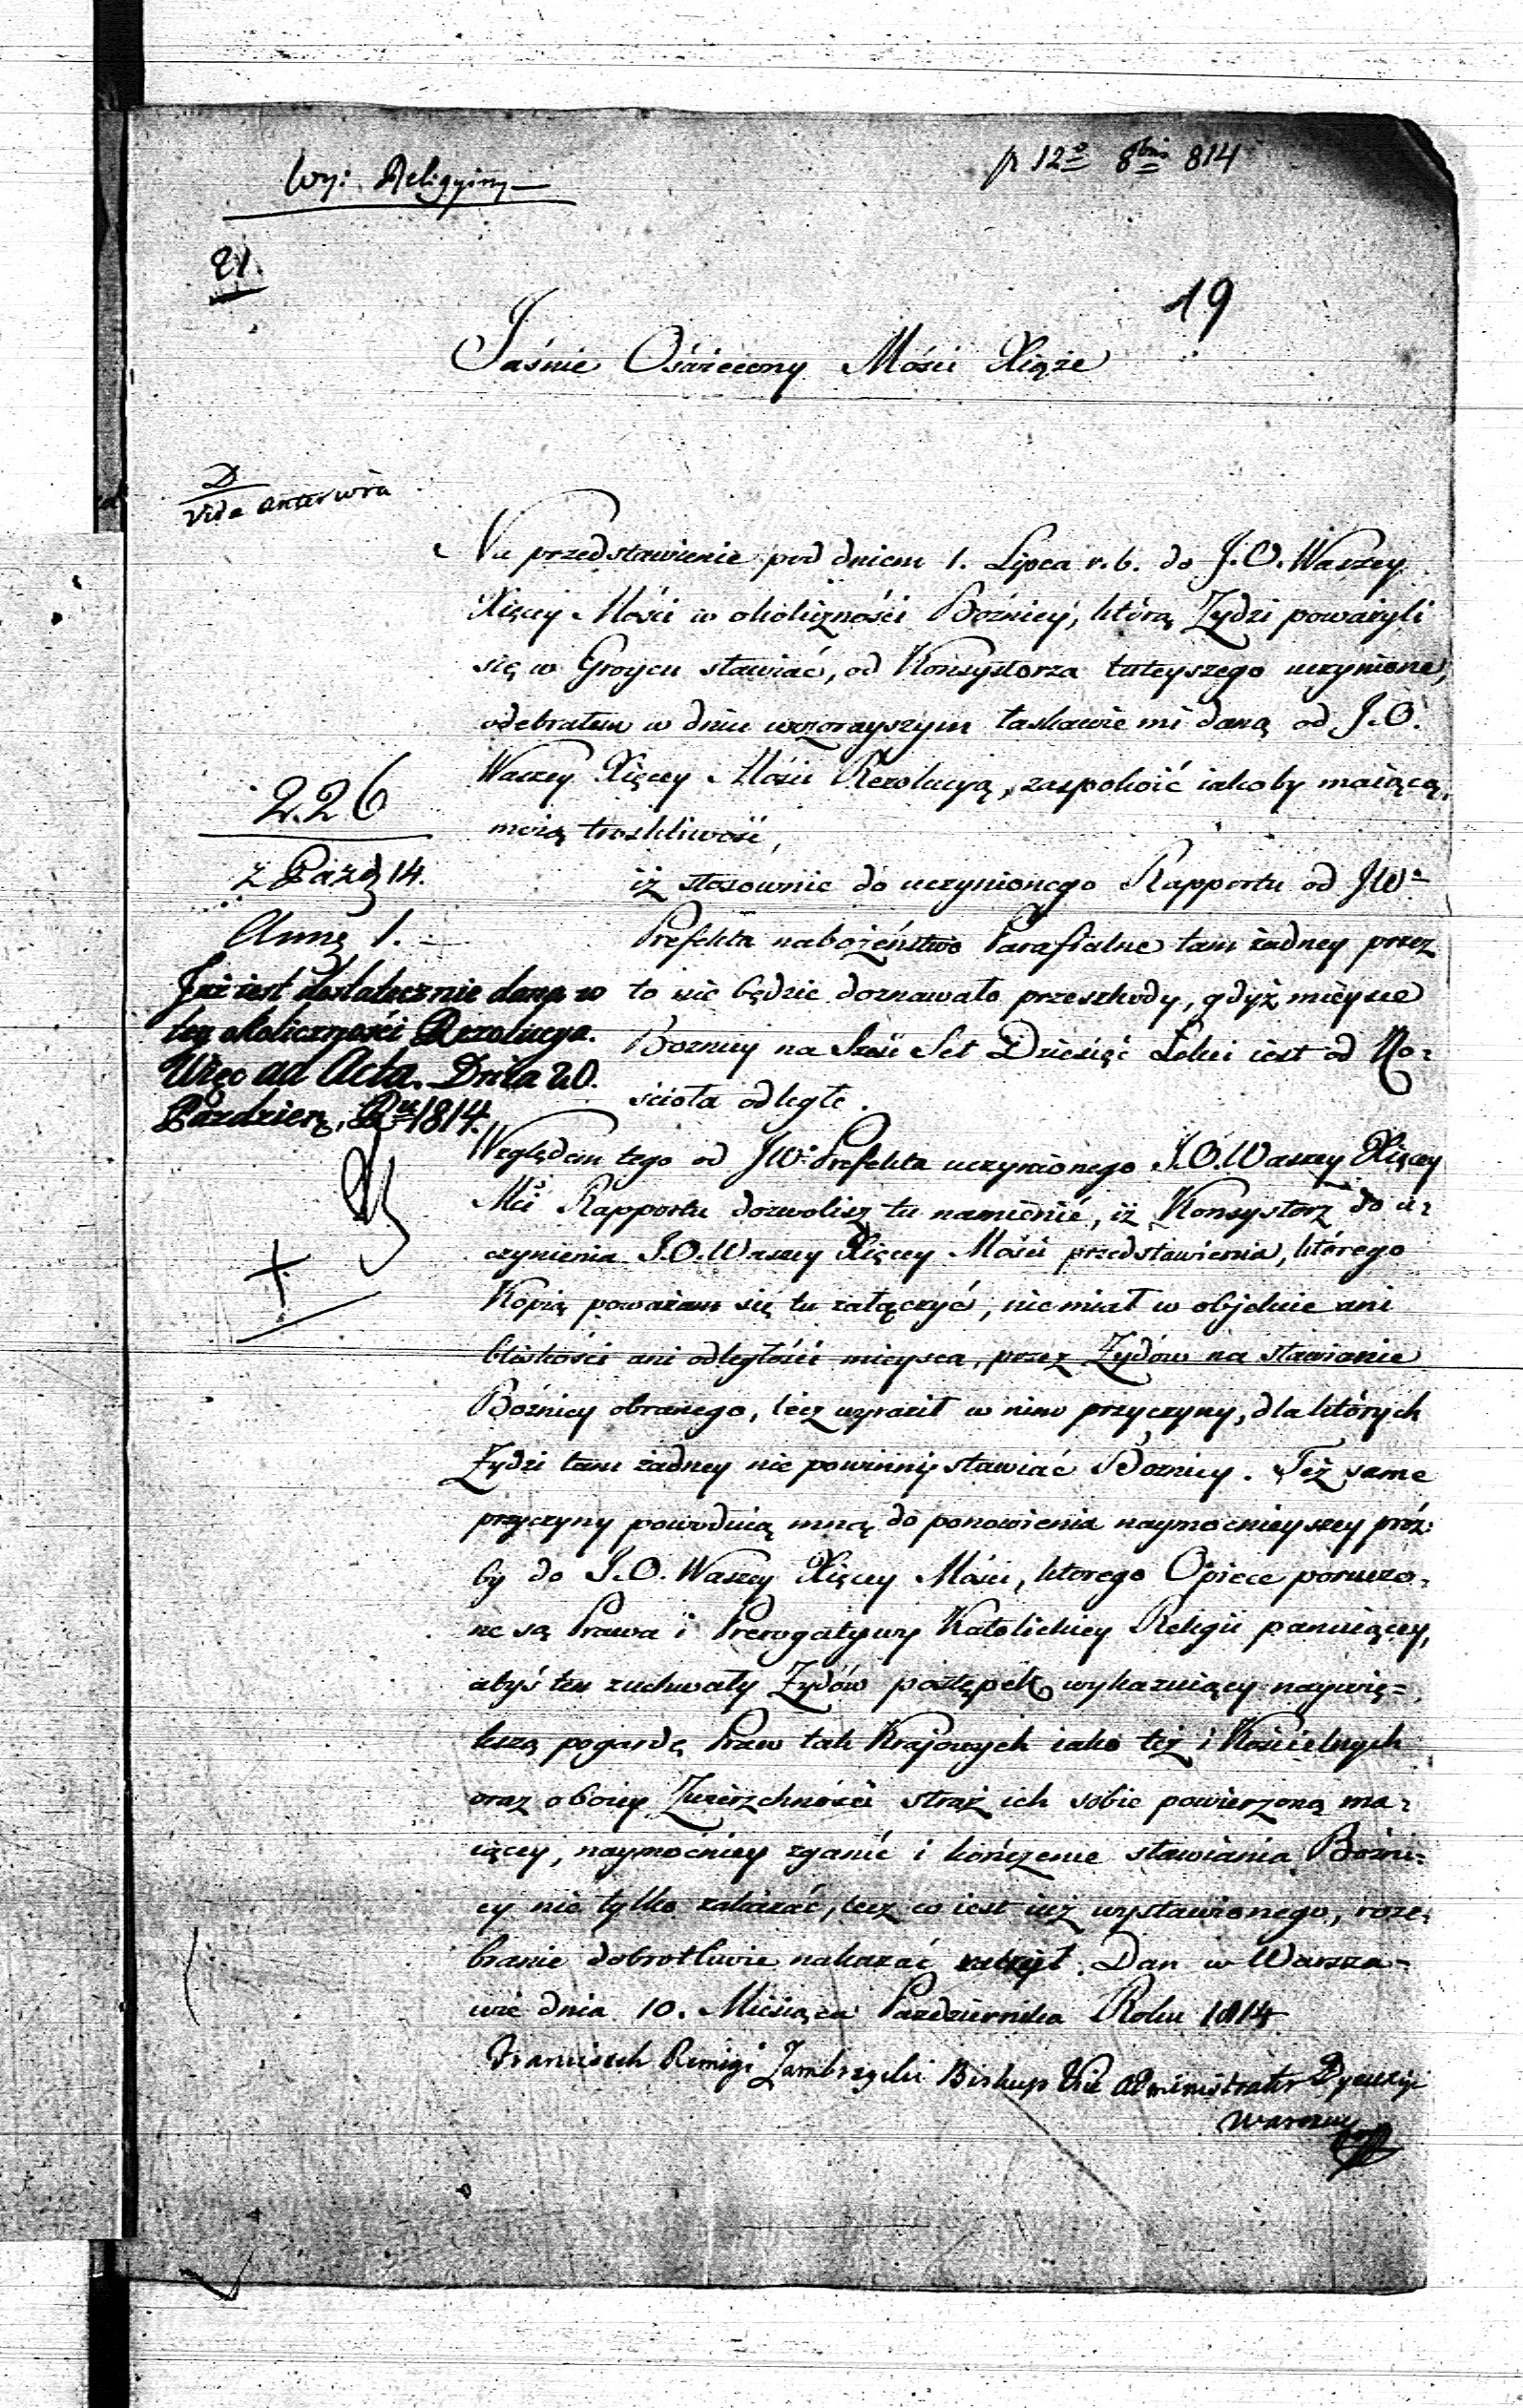 Wyz. Religyiny
p 12º 8bris 814
21.
19
Jaśnie Oświecony Mości Xiąże
D
vide anteriora
Na przedstawienie pod dniem 1. Lipca r. b. do J. O. Waszey
Xięcey Mości w okoliczności Bóźnicy, którą Żydzi poważyli
się w Groycu stawiać, od Konsystorza tuteyszego uczynione,
odebrałem w dniu wczorayszym łaskawie mi daną od J. O.
Waszey Xięcey Mości Rezolucyą, zaspokoić iakoby maiącą,
moią troskliwość,
iż stosownie do uczynionego Rapportu od JWº
Prefekta nabożeństwo Parafialne tam żadney przez
to nie będzie doznawało przeszkody, gdyż mieysce
Bóznicy na Sześć Set Dziesięć Łokci iest od Ko-
ścioła odległe.
226
z Paźdz 14.
Anną 1.
Już iest dostatecznie dana w
tey okoliczności Rezolucya.
Więc ad Acta. Dnia 20.
Październ. Ru 1814.
Względem tego od JW. Prefekta uczynionego J. O. Waszey Xięcey
Mci Rapportu dozwolisz tu namienić, iż Konsystorz do u-
czynienia J. O. Waszey Xięcey Mości przedstawienia, którego
Kopią poważam się tu załączyć, nie miał w objekcie ani
bliskości ani odległości mieysca, przez Żydów na stawianie
Bóźnicy obranego, lecz wyraził w nim przyczyny, dla których
Żydzi tam żadney nie powinni stawiać Bóznicy. Też same
przyczyny powoduią mną do ponowienia naymocnieyszey proź-
by do J. O. Waszey Xięcey Mości, ktorego Opiece poruczo-
ne są Prawa i Prerogatywy Katolickiey Religii panuiącey,
abyś ten zuchwały Żydów postępek wykazuiący naywię-
kszą pogardę Praw tak Krajowych iako też i Kościelnych
oraz oboiey Zwierzchności straż ich sobie powierzoną ma-
iącey, naymocniey zganić i kończenie stawiania Bóżni-
cy nie tylko zakazać, lecz co iest iuż wystawionego, roze-
branie dobrotliwie nakazać raczył. Dan w Warsza-
wie dnia 10. Miesiąca Pazdziernika Roku 1814
Franciszek Remigi Zambrzycki Biskup Vice Administrator Dyecezyi
Warszaw